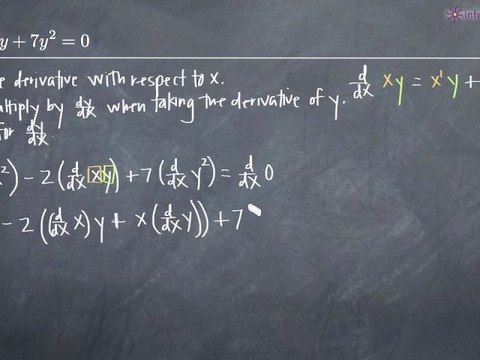 y + 7y² = 0
e derivative with respect to x.
ultiply by dy/dx when taking the derivative of y. d/dx xy = x'y +
for dy/dx
²) - 2(d/dx xy) + 7(d/dx y²) = d/dx 0
- 2((d/dx x)y + x(d/dx y)) + 7
inte